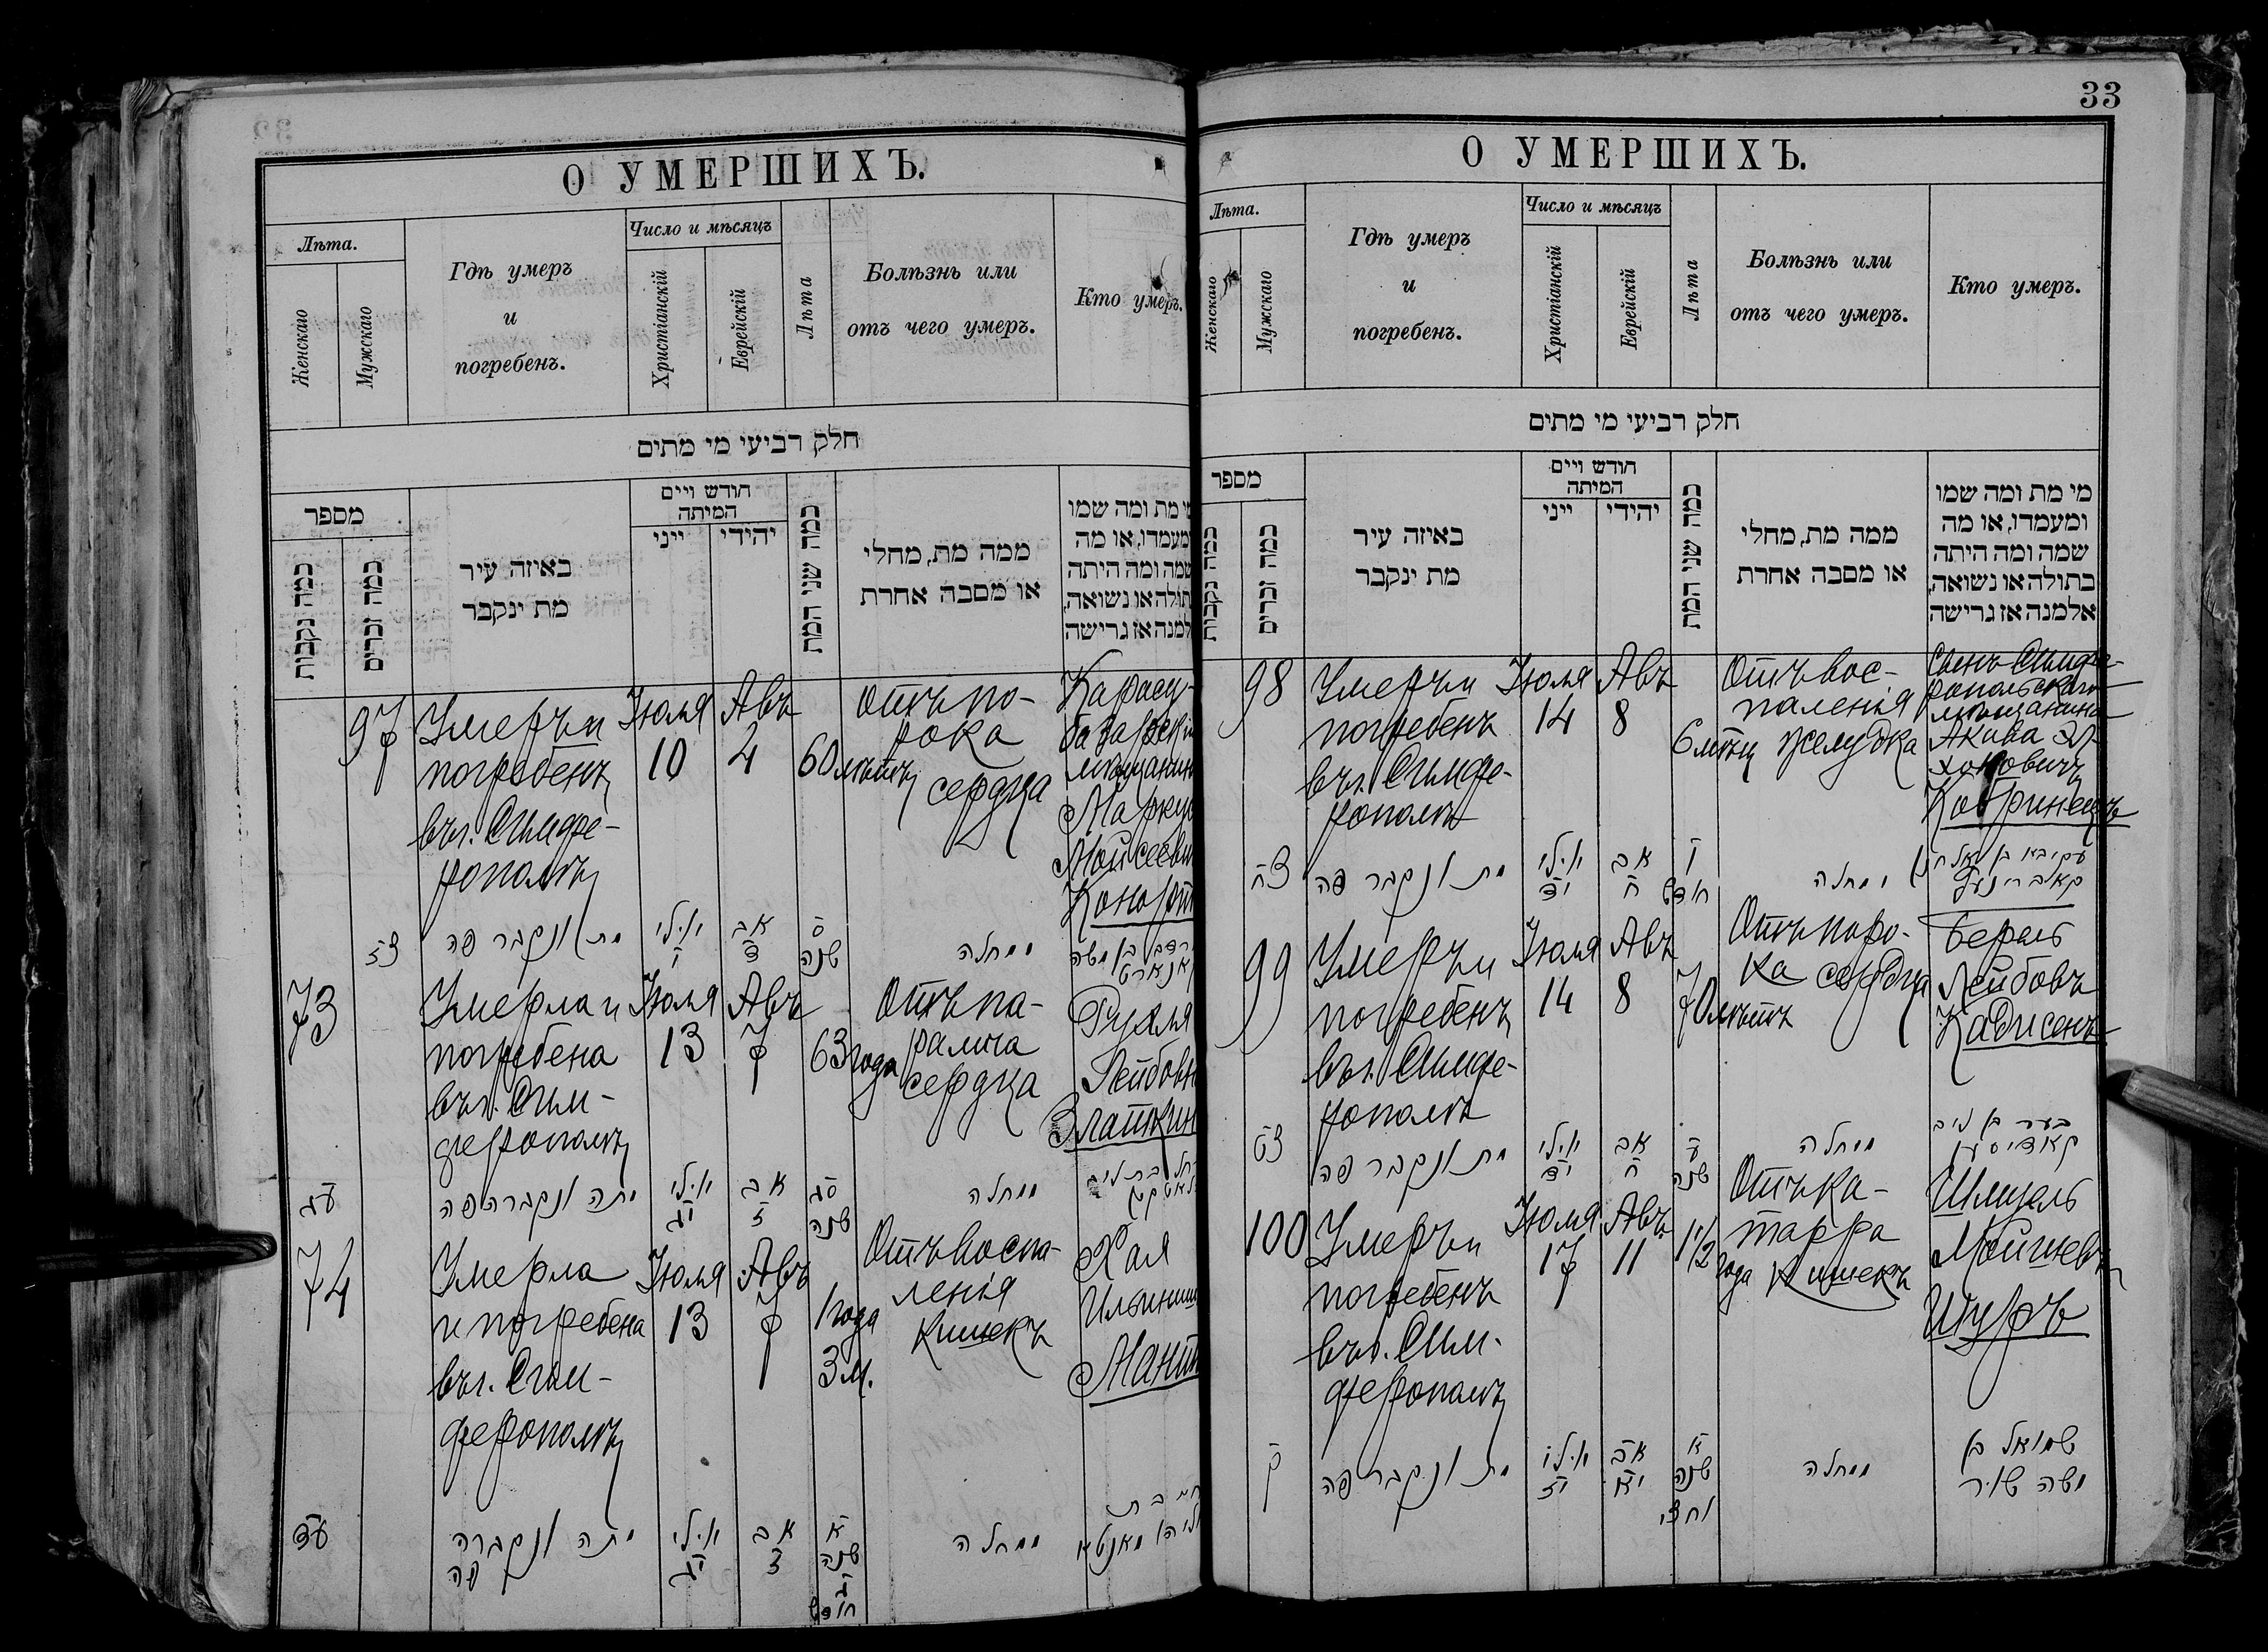 О УМЕРШИХЪ.
Лѣта.
Женскаго
Мужскаго
Гдѣ умеръ
и
погребенъ.
Число и мѣсяцъ
Христіанскій
Еврейскій
Лѣта
Болѣзнь или
отъ чего умеръ.
Кто умеръ.
חלק רביעי מי מתים
מספר
כמה נקבות
כמה זכרים
באיזה עיר
מת ינקבר
חודש ויים
המיתה
ייני
יהידי
כמה שני המת
ממה מת, מחלי
או מסבה אחרת
מי מת ומה שמו
ומעמדו, או מה
שמה ומה היתה
בתולה או נשואה,
אלמנה או גרישה
97
Умеръ и
погребенъ
въ г. Симфе-
рополѣ
Іюля
10
Авъ
4
60 лѣтъ
Отъ по-
рока
сердца
Карасу-
базарскій
мѣщанин
Марку
Мойсееви
Конорт
צז
מת ונקבר פה
יולי
י
אב
ד
ס
שנה
ממחלה
73
Умерла и
погребена
въ г. Сим-
ферополѣ
Іюля
13
Авъ
7
63 года
Отъ па-
ралича
сердца
Рухля
Лейбовн
Златкин
עג
מתה ונקברה פה
יולי
יג
אב
ז
סג
שנה
ממחלה
74
Умерла
и погребена
въ г. Сим-
ферополѣ
Іюля
13
Авъ
7
1 года
3 м.
Отъ воспа-
ленія
кишекъ
Хая
Ильиниш
Мант
עד
מתה ונקברה
פה
יולי
יג
אב
ז
א
שנה
ג
חודש
ממחלה
33
О УМЕРШИХЪ.
Лѣта.
Женскаго
Мужскаго
Гдѣ умеръ
и
погребенъ.
Число и мѣсяцъ
Христіанскій
Еврейскій
Лѣта
Болѣзнь или
отъ чего умеръ.
Кто умеръ.
חלק רביעי מי מתים
מספר
כמה נקבות
כמה זכרים
באיזה עיר
מת ינקבר
חודש ויים
המיתה
ייני
יהידי
כמה שני המת
ממה מת, מחלי
או מסבה אחרת
מי מת ומה שמו
ומעמדו, או מה
שמה ומה היתה
בתולה או נשואה,
אלמנה או גרישה
98
Умеръ и
погребенъ
въ г. Симфе-
рополѣ
Іюля
14
Авъ
8
6 мѣсяц
Отъ вос-
паленія
желудка
Сынъ Симфе-
ропольскаго
мѣщанина
Акива Эл-
хоновичъ
Кобринецъ
צח
מת ונקבר פה
יולי
יד
אב
ח
ו
חודש
ממחלה
עקיבא בן אלחנן
קאברינעץ
99
Умеръ и
погребенъ
въ г. Симфе-
рополѣ
Іюля
14
Авъ
8
70 лѣтъ
Отъ поро-
ка сердца
Берль
Лейбовъ
Кадисенъ
צט
מת ונקבר פה
יולי
יד
אב
ח
ע
שנה
ממחלה
בער בן ליב
קאדיסען
100
Умеръ и
погребенъ
въ г. Сим-
ферополѣ
Іюля
17
Авъ
11
1 1/2
года
Отъ ка-
тарра
кишекъ
Шмуель
Мойшев
Шуръ
ק
מת ונקבר פה
יולי
יז
אב
יא
א
שנה
וחצי
ממחלה
שמואל בן
משה שור